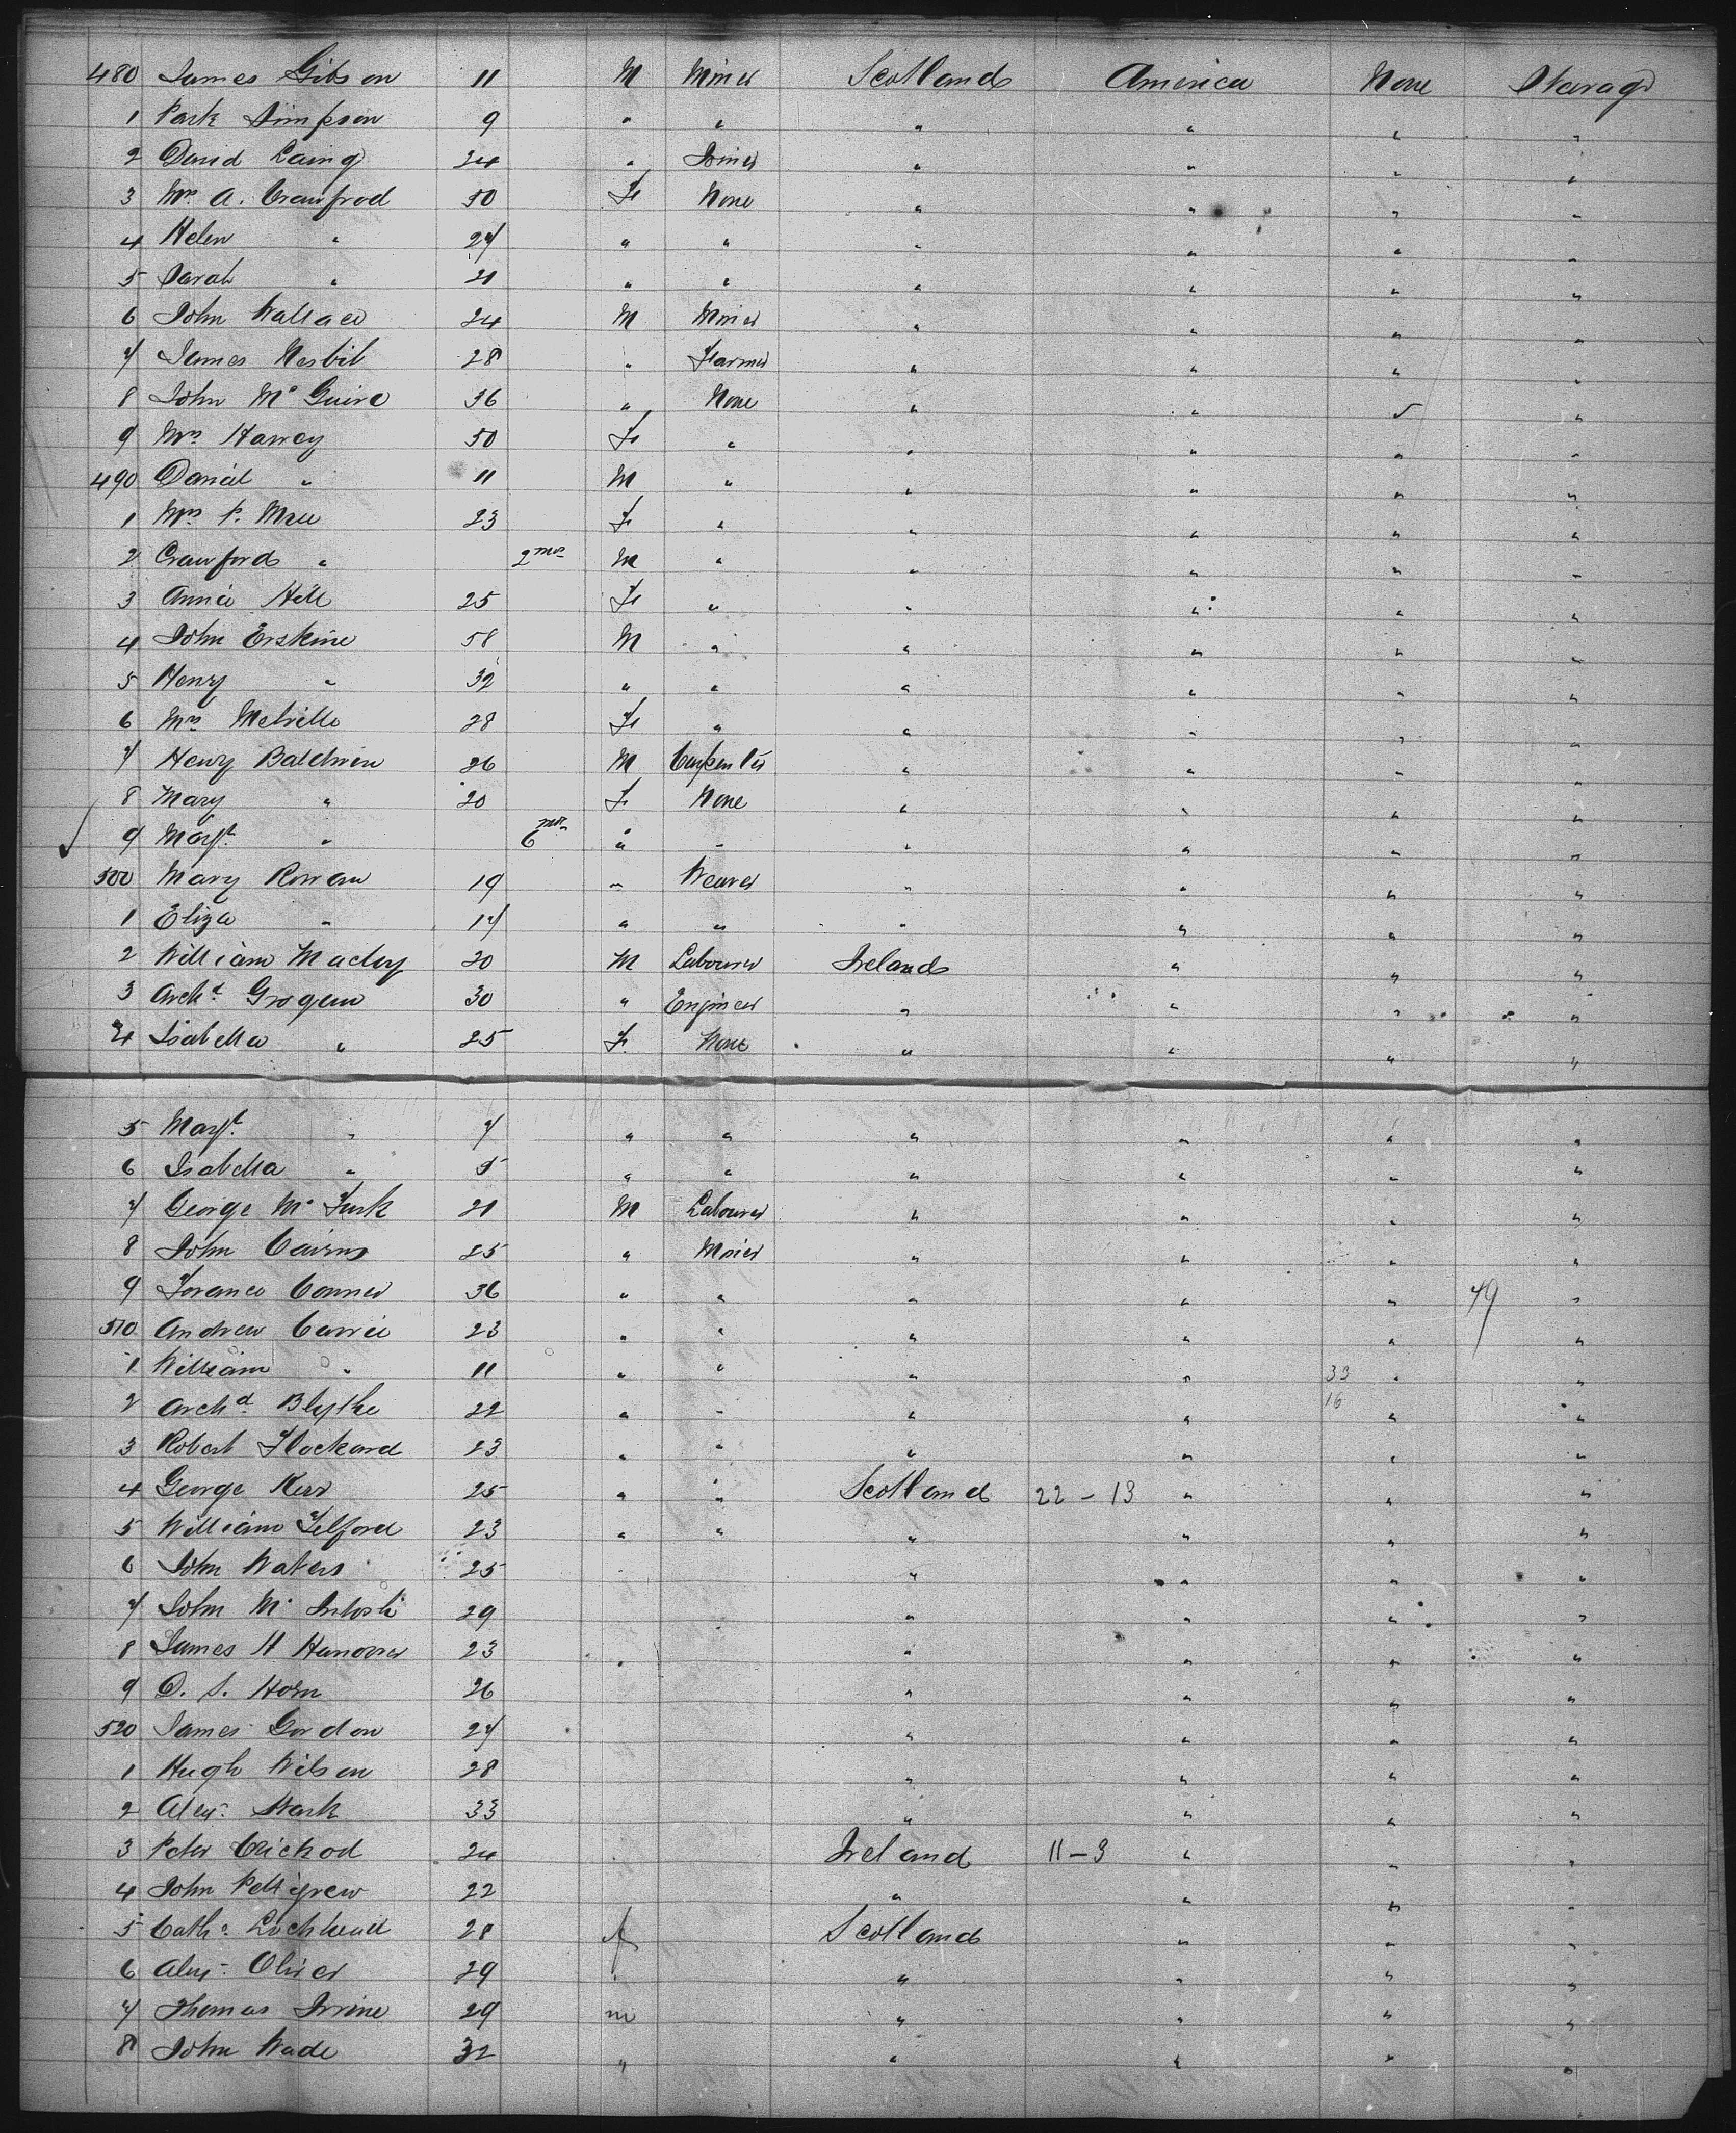 480 James Gibson 11 M Miner Scotland America None Steerage
1 Park Simpson 9 " " " " " "
2 David Laing 24 " Joiner " " " "
3 Mrs A. Craufrod 50 Fe None " " " "
4 Helen " 27 " " " " " "
5 Sarah " 21 " " " " " "
6 John Wallace 24 M Miner " " " "
7 James Nesbit 28 " Farmer " " " "
8 John Mc Guire 36 " None " " " "
9 Mrs Harvey 50 Fe " " " " "
490 Daniel " 11 M " " " " "
1 Mrs P. 23 Fe " " " " "
2 Crawford " 2 mos M " " " " "
3 Annie Hill 25 Fe " " " " "
4 John Erskine 58 M " " " " "
5 Henry " 32 " " " " " "
6 Mrs Melville 28 Fe " " " " "
7 Henry Baldwin 26 M Carpenter " " " "
8 Mary " 20 F None " " " "
9 Margt " 6 mos " " " " " "
500 Mary Rowan 19 " Weaver " " " "
1 Eliza " 17 " " " " " "
2 William 20 M Labourer Ireland " " "
3 Archd Grogan 30 " Engineer " " " "
4 Isabella " 25 F. None " " " "
5 Margt " 7 " " " " " "
6 Isabella " 5 " " " " " "
7 George Mc Turk 21 M Labourer " " " "
8 John Cairns 25 " Miner " " " "
9 Connor 36 " " " " " 79 "
510 Andrew Carrie 23 " " " " " "
1 William " 11 " " " " 33 " "
2 Archd Blythe 22 " " " " 16 " "
3 Robert Flockard 23 " " " " " "
4 George Kerr 25 " " Scotland 22-13 " " "
5 William Telford 23 " " " " " "
6 John Waters 25 " " " "
7 John Mc Intosh 29 " " " "
8 James H Hanover 23 " " " "
9 D. S. Horn 26 " " " "
520 James Gordon 27 " " " "
1 Hugh Wilson 28 " " " "
2 Alexr Stark 33 " " " "
3 Peter Crichod 24 Ireland 11-3 " " "
4 John Pettigrew 22 " " " "
5 Cath. Lochhead 28 f Scotland " " "
6 Alexr Oliver 29 " " " " "
7 Thomas Irvine 29 m " " " "
8 John Wade 32 " " " " "